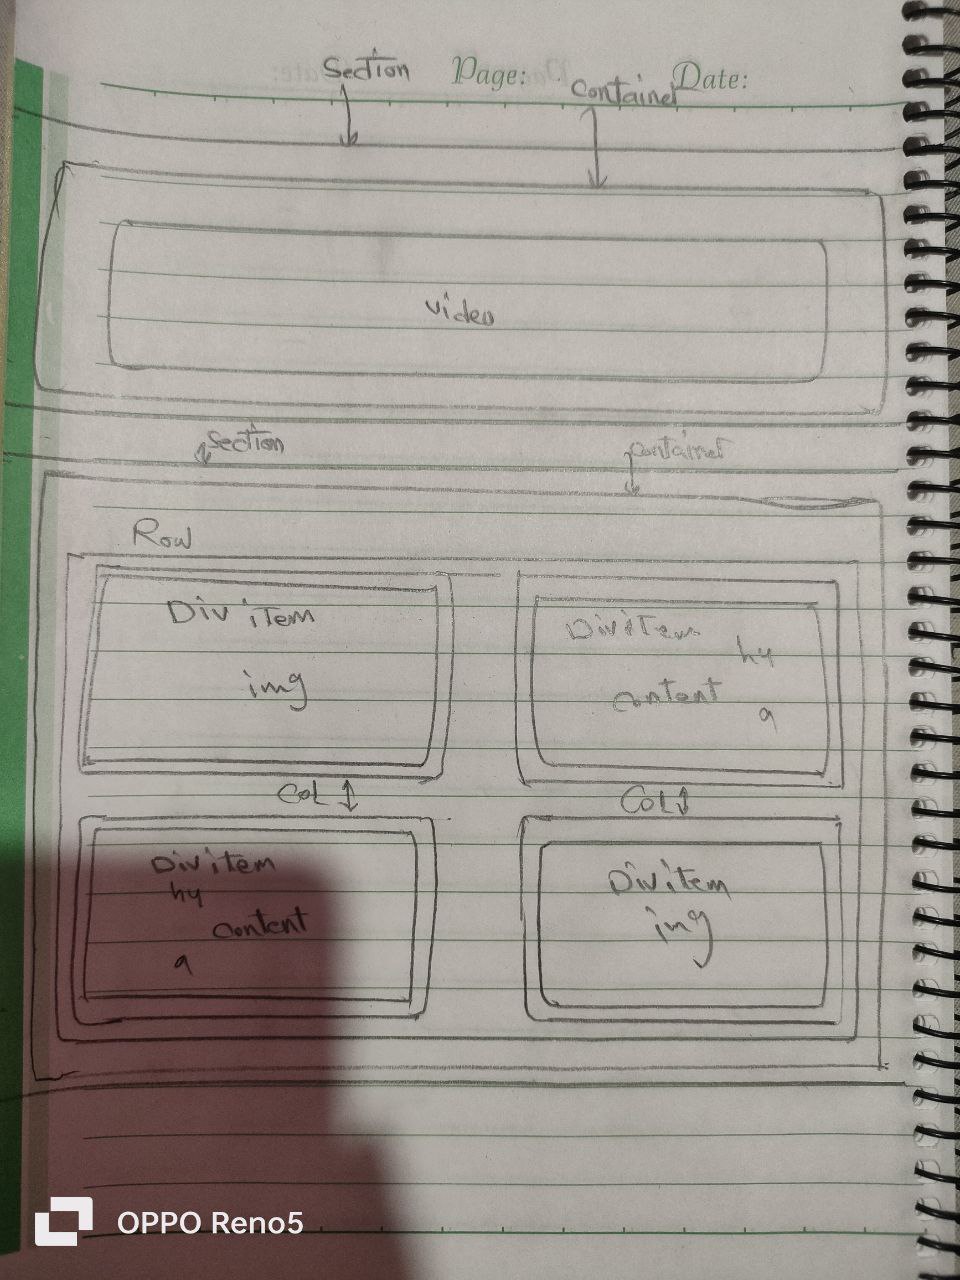 Section
Page:
Date:
Container
video
Section
Container
Row
Div item
img
Div item
h4
content
a
Col
Col
Div item
h4
content
a
Div item
img
OPPO Reno5